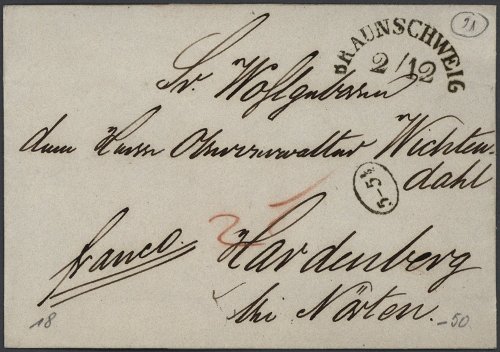 21
BRAUNSCHWEIG
2/12
Sr. Wohlgeboren
dem Herrn Oberverwalter Wichten-
dahl
5-5½
franco
Hardenberg
bei Nörten.
18
-50